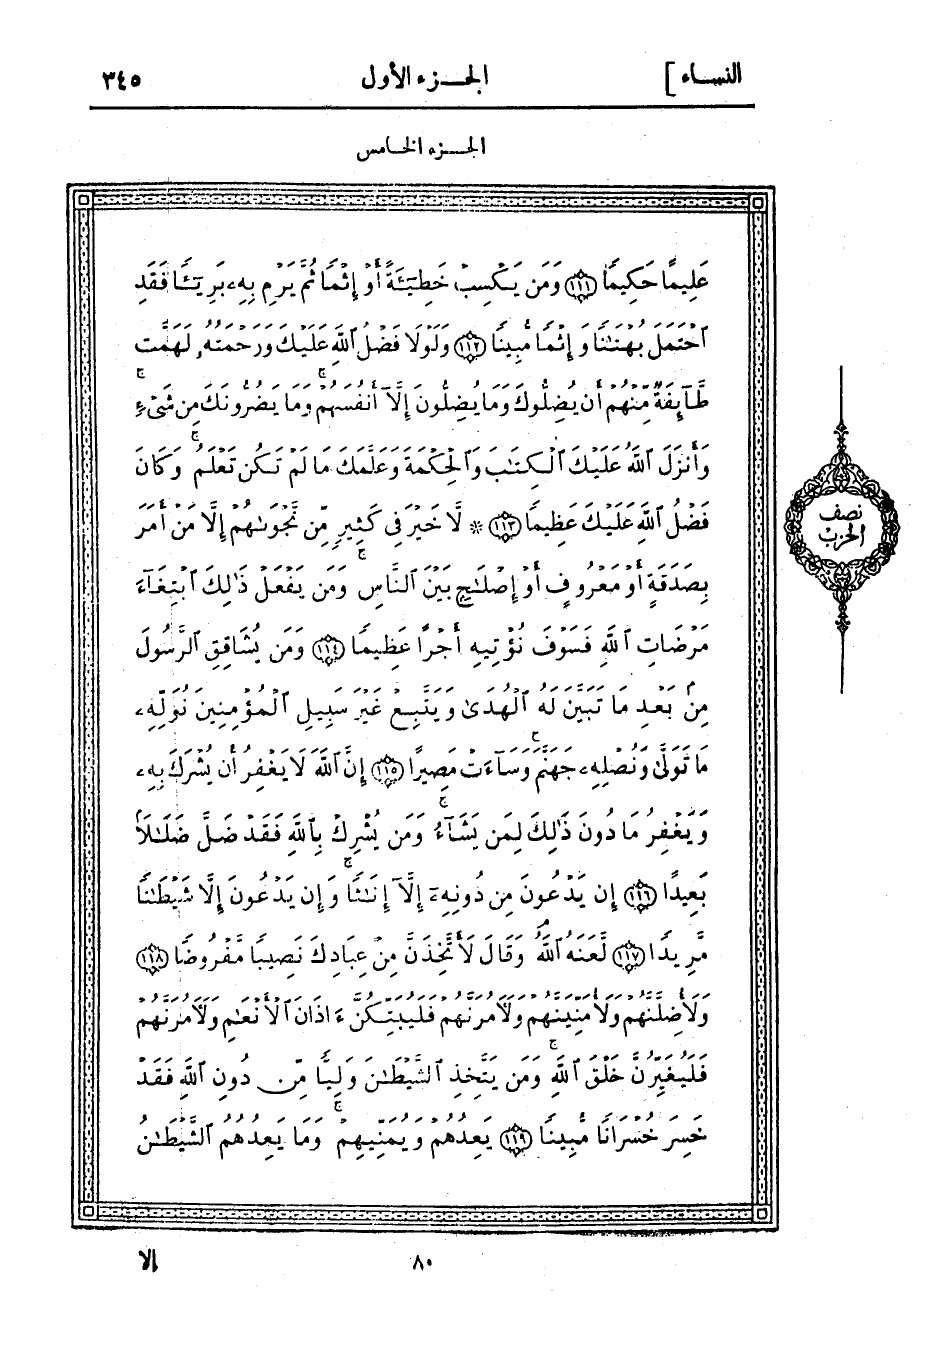 النساء ] الجزء الأول ٣٤٥
الجزء الخامس
عَلِيمًا حَكِيمًا ﴿١١١﴾ وَمَن يَكْسِبْ خَطِيٓئَةً أَوْ إِثْمًا ثُمَّ يَرْمِ بِهِۦ بَرِيٓئًا فَقَدِ
ٱحْتَمَلَ بُهْتَٰنًا وَإِثْمًا مُّبِينًا ﴿١١٢﴾ وَلَوْلَا فَضْلُ ٱللَّهِ عَلَيْكَ وَرَحْمَتُهُۥ لَهَمَّت
طَّآئِفَةٌ مِّنْهُمْ أَن يُضِلُّوكَ وَمَا يُضِلُّونَ إِلَّآ أَنفُسَهُمْ ۚ وَمَا يَضُرُّونَكَ مِن شَىْءٍ ۚ
وَأَنزَلَ ٱللَّهُ عَلَيْكَ ٱلْكِتَٰبَ وَٱلْحِكْمَةَ وَعَلَّمَكَ مَا لَمْ تَكُن تَعْلَمُ ۚ وَكَانَ
فَضْلُ ٱللَّهِ عَلَيْكَ عَظِيمًا ﴿١١٣﴾ * لَّا خَيْرَ فِى كَثِيرٍ مِّن نَّجْوَىٰهُمْ إِلَّا مَنْ أَمَرَ
بِصَدَقَةٍ أَوْ مَعْرُوفٍ أَوْ إِصْلَٰحٍۭ بَيْنَ ٱلنَّاسِ ۚ وَمَن يَفْعَلْ ذَٰلِكَ ٱبْتِغَآءَ
مَرْضَاتِ ٱللَّهِ فَسَوْفَ نُؤْتِيهِ أَجْرًا عَظِيمًا ﴿١١٤﴾ وَمَن يُشَاقِقِ ٱلرَّسُولَ
مِنۢ بَعْدِ مَا تَبَيَّنَ لَهُ ٱلْهُدَىٰ وَيَتَّبِعْ غَيْرَ سَبِيلِ ٱلْمُؤْمِنِينَ نُوَلِّهِۦ
مَا تَوَلَّىٰ وَنُصْلِهِۦ جَهَنَّمَ ۖ وَسَآءَتْ مَصِيرًا ﴿١١٥﴾ إِنَّ ٱللَّهَ لَا يَغْفِرُ أَن يُشْرَكَ بِهِۦ
وَيَغْفِرُ مَا دُونَ ذَٰلِكَ لِمَن يَشَآءُ ۚ وَمَن يُشْرِكْ بِٱللَّهِ فَقَدْ ضَلَّ ضَلَٰلًۢا
بَعِيدًا ﴿١١٦﴾ إِن يَدْعُونَ مِن دُونِهِۦٓ إِلَّآ إِنَٰثًا ۚ وَإِن يَدْعُونَ إِلَّا شَيْطَٰنًا
مَّرِيدًا ﴿١١٧﴾ لَّعَنَهُ ٱللَّهُ ۘ وَقَالَ لَأَتَّخِذَنَّ مِنْ عِبَادِكَ نَصِيبًا مَّفْرُوضًا ﴿١١٨﴾
وَلَأُضِلَّنَّهُمْ وَلَأُمَنِّيَنَّهُمْ وَلَءَامُرَنَّهُمْ فَلَيُبَتِّكُنَّ ءَاذَانَ ٱلْأَنْعَٰمِ وَلَءَامُرَنَّهُمْ
فَلَيُغَيِّرُنَّ خَلْقَ ٱللَّهِ ۚ وَمَن يَتَّخِذِ ٱلشَّيْطَٰنَ وَلِيًّا مِّن دُونِ ٱللَّهِ فَقَدْ
خَسِرَ خُسْرَانًا مُّبِينًا ﴿١١٩﴾ يَعِدُهُمْ وَيُمَنِّيهِمْ ۖ وَمَا يَعِدُهُمُ ٱلشَّيْطَٰنُ
نصف
الحزب
٨٠
إلا